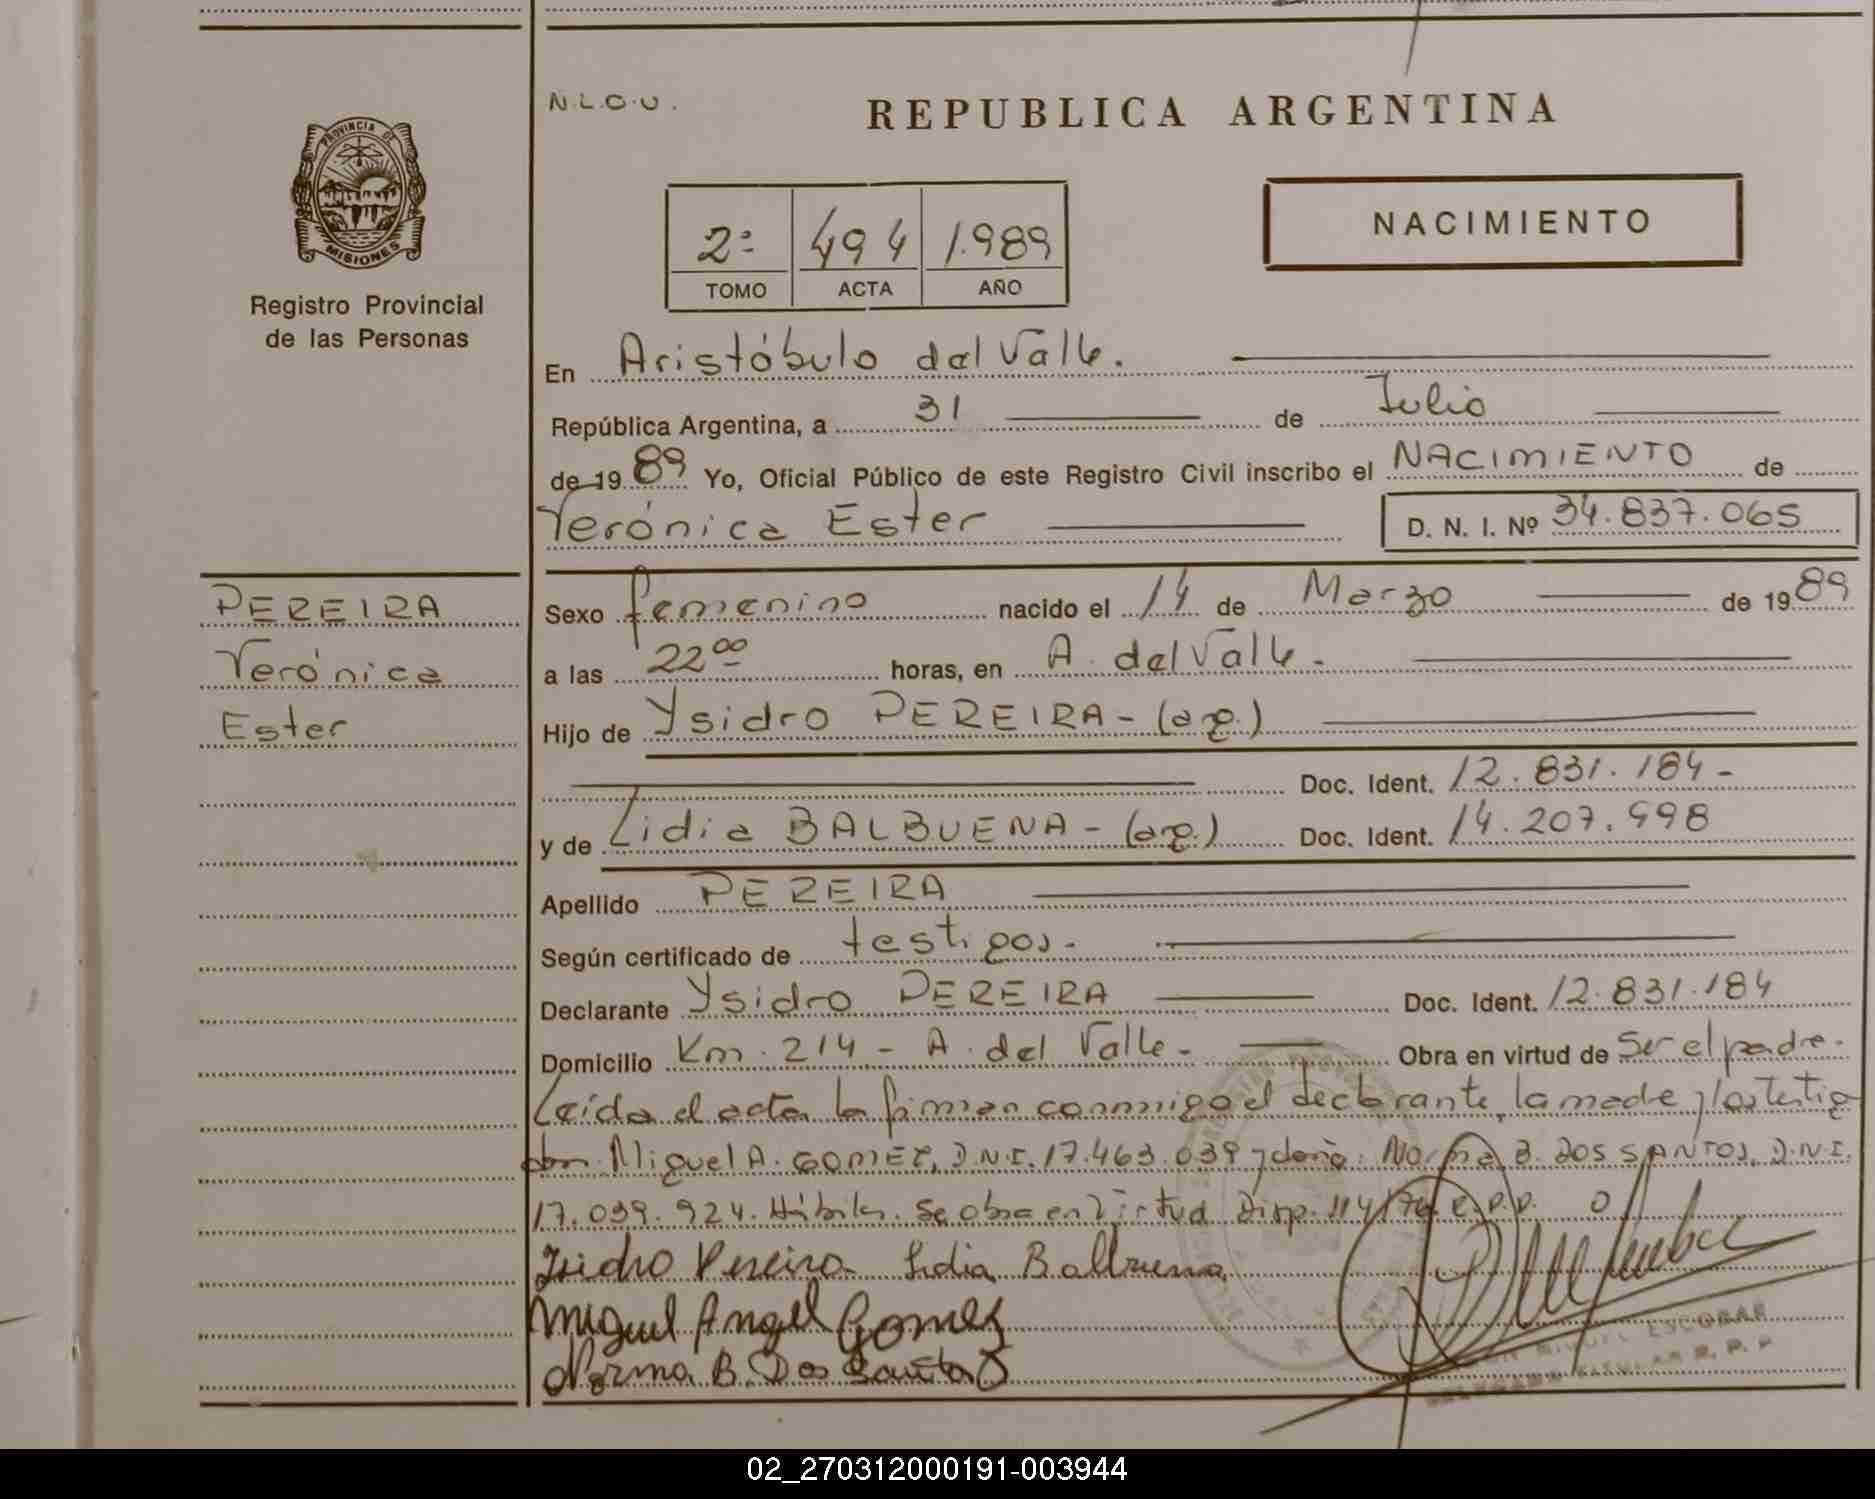 N.L.O.U.
REPUBLICA ARGENTINA
PROVINCIA DE
MISIONES
Registro Provincial
de las Personas
2º 494 1.989
TOMO ACTA AÑO
NACIMIENTO
En Aristóbulo del Valle.
República Argentina, a 31 de Julio
de 19 89 Yo, Oficial Público de este Registro Civil inscribo el NACIMIENTO de
Verónica Ester D. N. I. Nº 34.837.065
PEREIRA
Verónica
Ester
Sexo femenino nacido el 14 de Marzo de 19 89
a las 22 00 horas, en A. del Valle.
Hijo de Ysidro PEREIRA - (arg.)
Doc. Ident. 12.831.184 -
y de Lidia BALBUENA - (arg.) Doc. Ident. 14.207.998
Apellido PEREIRA
Según certificado de testigos.
Declarante Ysidro PEREIRA Doc. Ident. 12.831.184
Domicilio Km. 214 - A. del Valle - Obra en virtud de Ser el padre.
Leída el acta la firman conmigo el declarante, la madre y los testigo
don Miguel A. GOMEZ, D.N.I. 17.463.039 y doña: Norma B. DOS SANTOS, D.N.I.
17.039.924. Hábiles. Se obra en Virtud Disp. 114/76 R.P.P.
Isidro Pereira Lidia Balbuena
Miguel Angel Gomez
Norma B. Dos Santos
MIGUEL ESCOBAR
DELEGADO TITULAR R. P. P
02_270312000191-003944